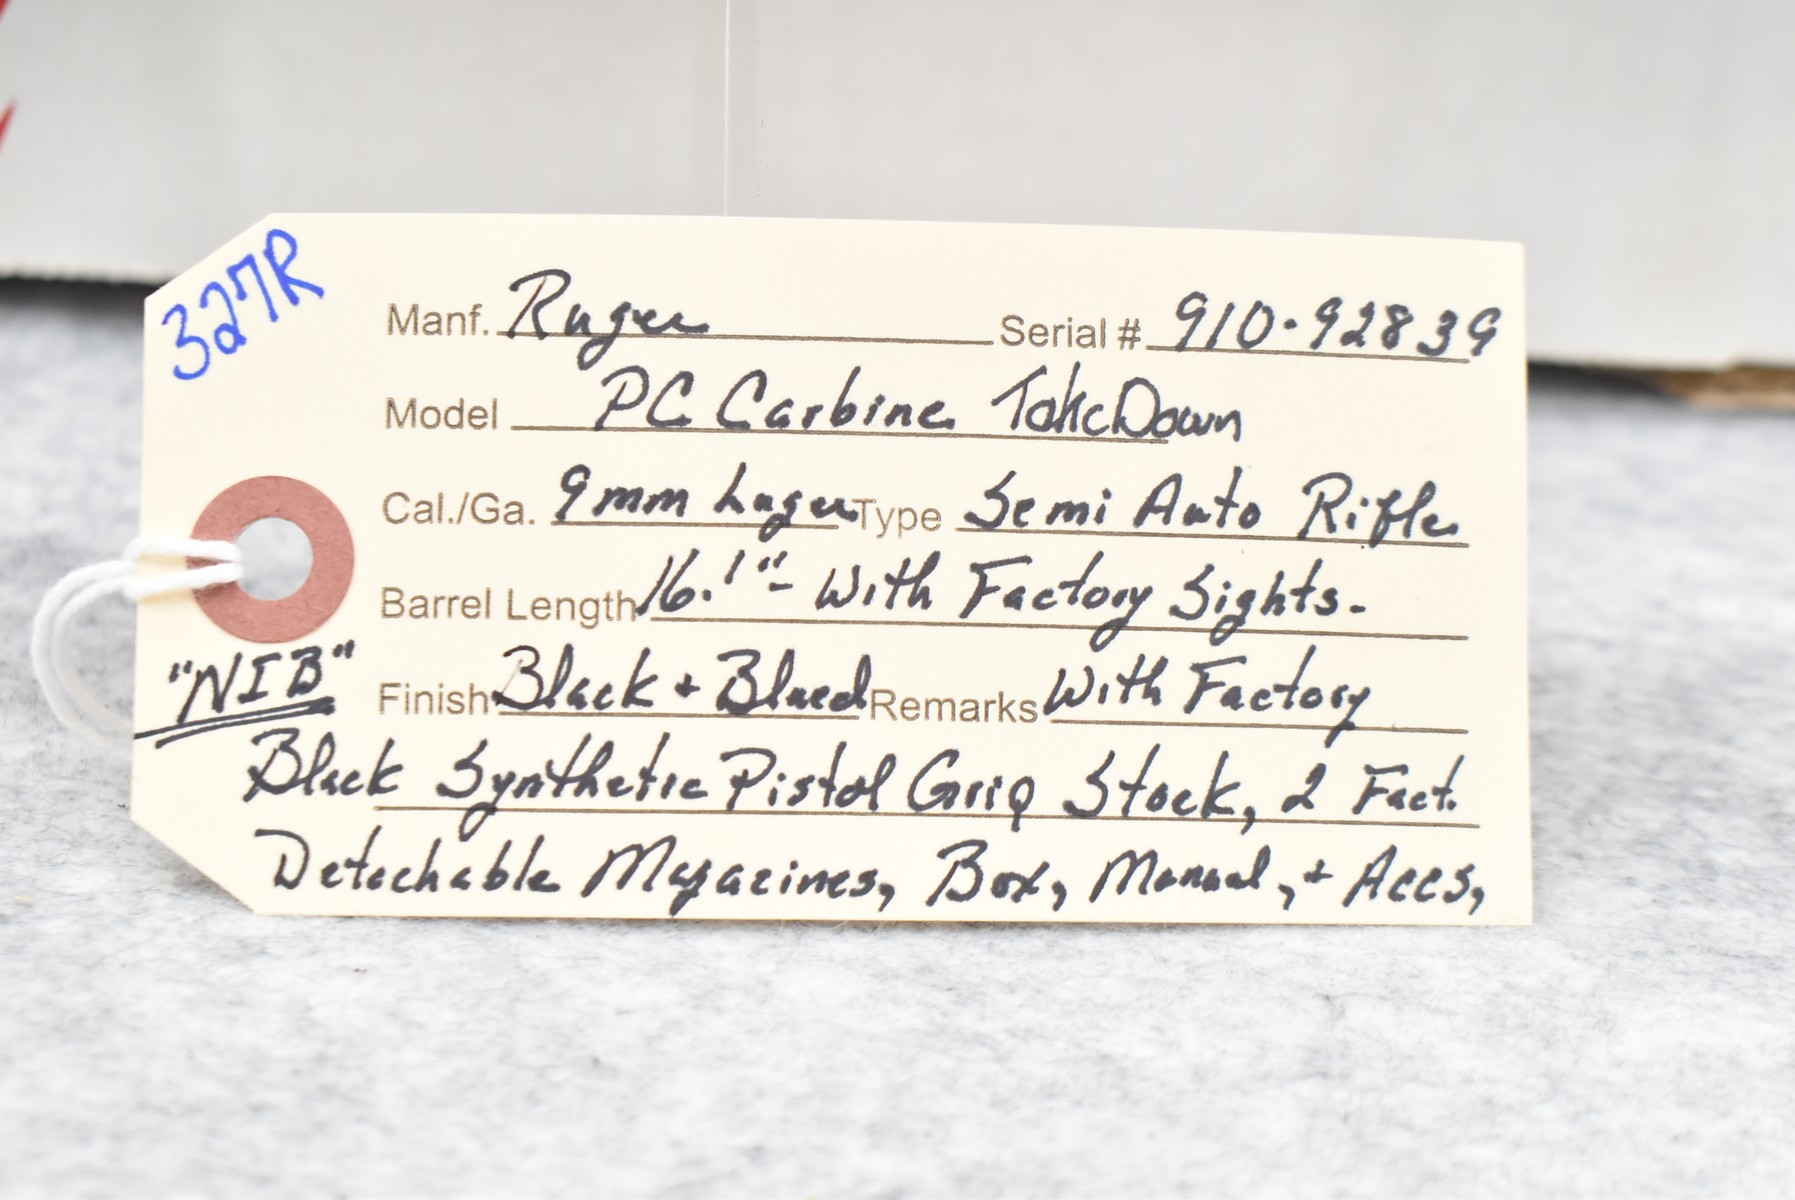 327R
Manf. Ruger Serial # 910-92839
Model PC Carbine TakeDown
Cal./Ga. 9mm Luger Type Semi Auto Rifle
Barrel Length 16.1" - With Factory Sights -
"NIB"
Finish Black + Blued Remarks With Factory
Black Synthetic Pistol Grip Stock, 2 Fact.
Detachable Magazines, Box, Manual, + Accs,